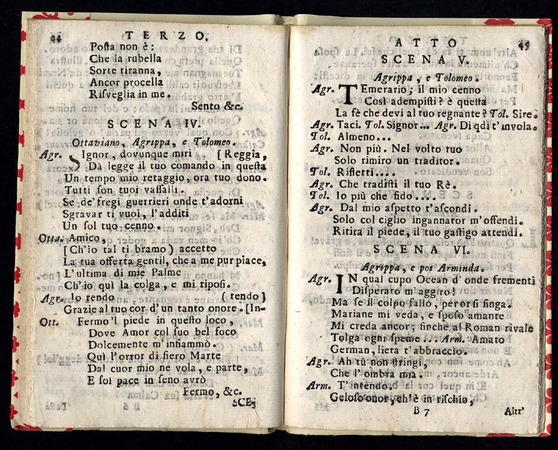 44 TERZO.
Posta non è:
Che la rubella
Sorte tiranna,
Ancor procella
Risveglia in me.
Sento &c.
SCENA IV.
Ottaviano, Agrippa, e Tolomeo.
Agr. SIgnor, dovunque miri [Reggia,
Dà legge il tuo comando in questa
Un tempo mio retaggio, ora tuo dono.
Tutti son tuoi vassalli.
Se de' fregi guerrieri onde t'adorni
Sgravar ti vuoi, l'additi
Un sol tuo cenno.
Otta. Amico,
[Ch'io tal ti bramo) accetto
La tua offerta gentil, che a me pur piace,
L'ultima di mie Palme
Ch'io quì la colga, e mi riposi.
Agr. Io rendo (tendo)
Grazie al tuo cor d'un tanto onore. [In-
Ott. Fermo'l piede in questo loco,
Dove Amor col suo bel foco
Dolcemente m'infiammò.
Quì l'orror di fiero Marte
Dal cuor mio ne vola, e parte,
E soi pace in seno avrò
Fermo, &c.
SCE-
ATTO 45
SCENA V.
Agrippa, e Tolomeo.
Agr. TEmerario; il mio cenno
Così adempisti? è questa
La fè che devi al tuo regnante? Tol. Sire.
Agr. Taci. Tol. Signor... Agr. Di qdì t'invola.
Tol. Almeno...
Agr. Non più. Nel volto tuo
Solo rimiro un traditor.
Tol. Rifletti....
Agr. Che tradisti il tuo Rè.
Tol. Io più che fido....
Agr. Dal mio aspetto t'ascondi.
Solo col ciglio ingannator m'offendi.
Ritira il piede, il tuo gastigo attendi.
SCENA VI.
Agrippa, e poi Arminda.
Agr. IN qual cupo Ocean d'onde frementi
Disperato m'aggiro!
Ma se il colpo fallò, per or si finga.
Mariane mi veda, e sposo amante
Mi creda ancor; finche al Roman rivale
Tolga ogni speme... Arm. Amato
German, lieta t'abbraccio.
Agr. Ah tù non stringi,
Che l'ombra mia.
Arm. T'intendo.
Geloso onor, ch'è in rischio,
B 7 Altr'